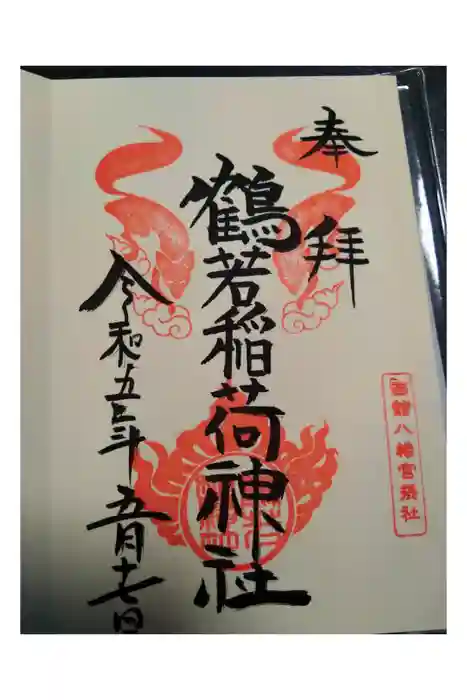 奉拝
鶴若稲荷神社
令和五年五月十七日
函館八幡宮兼社